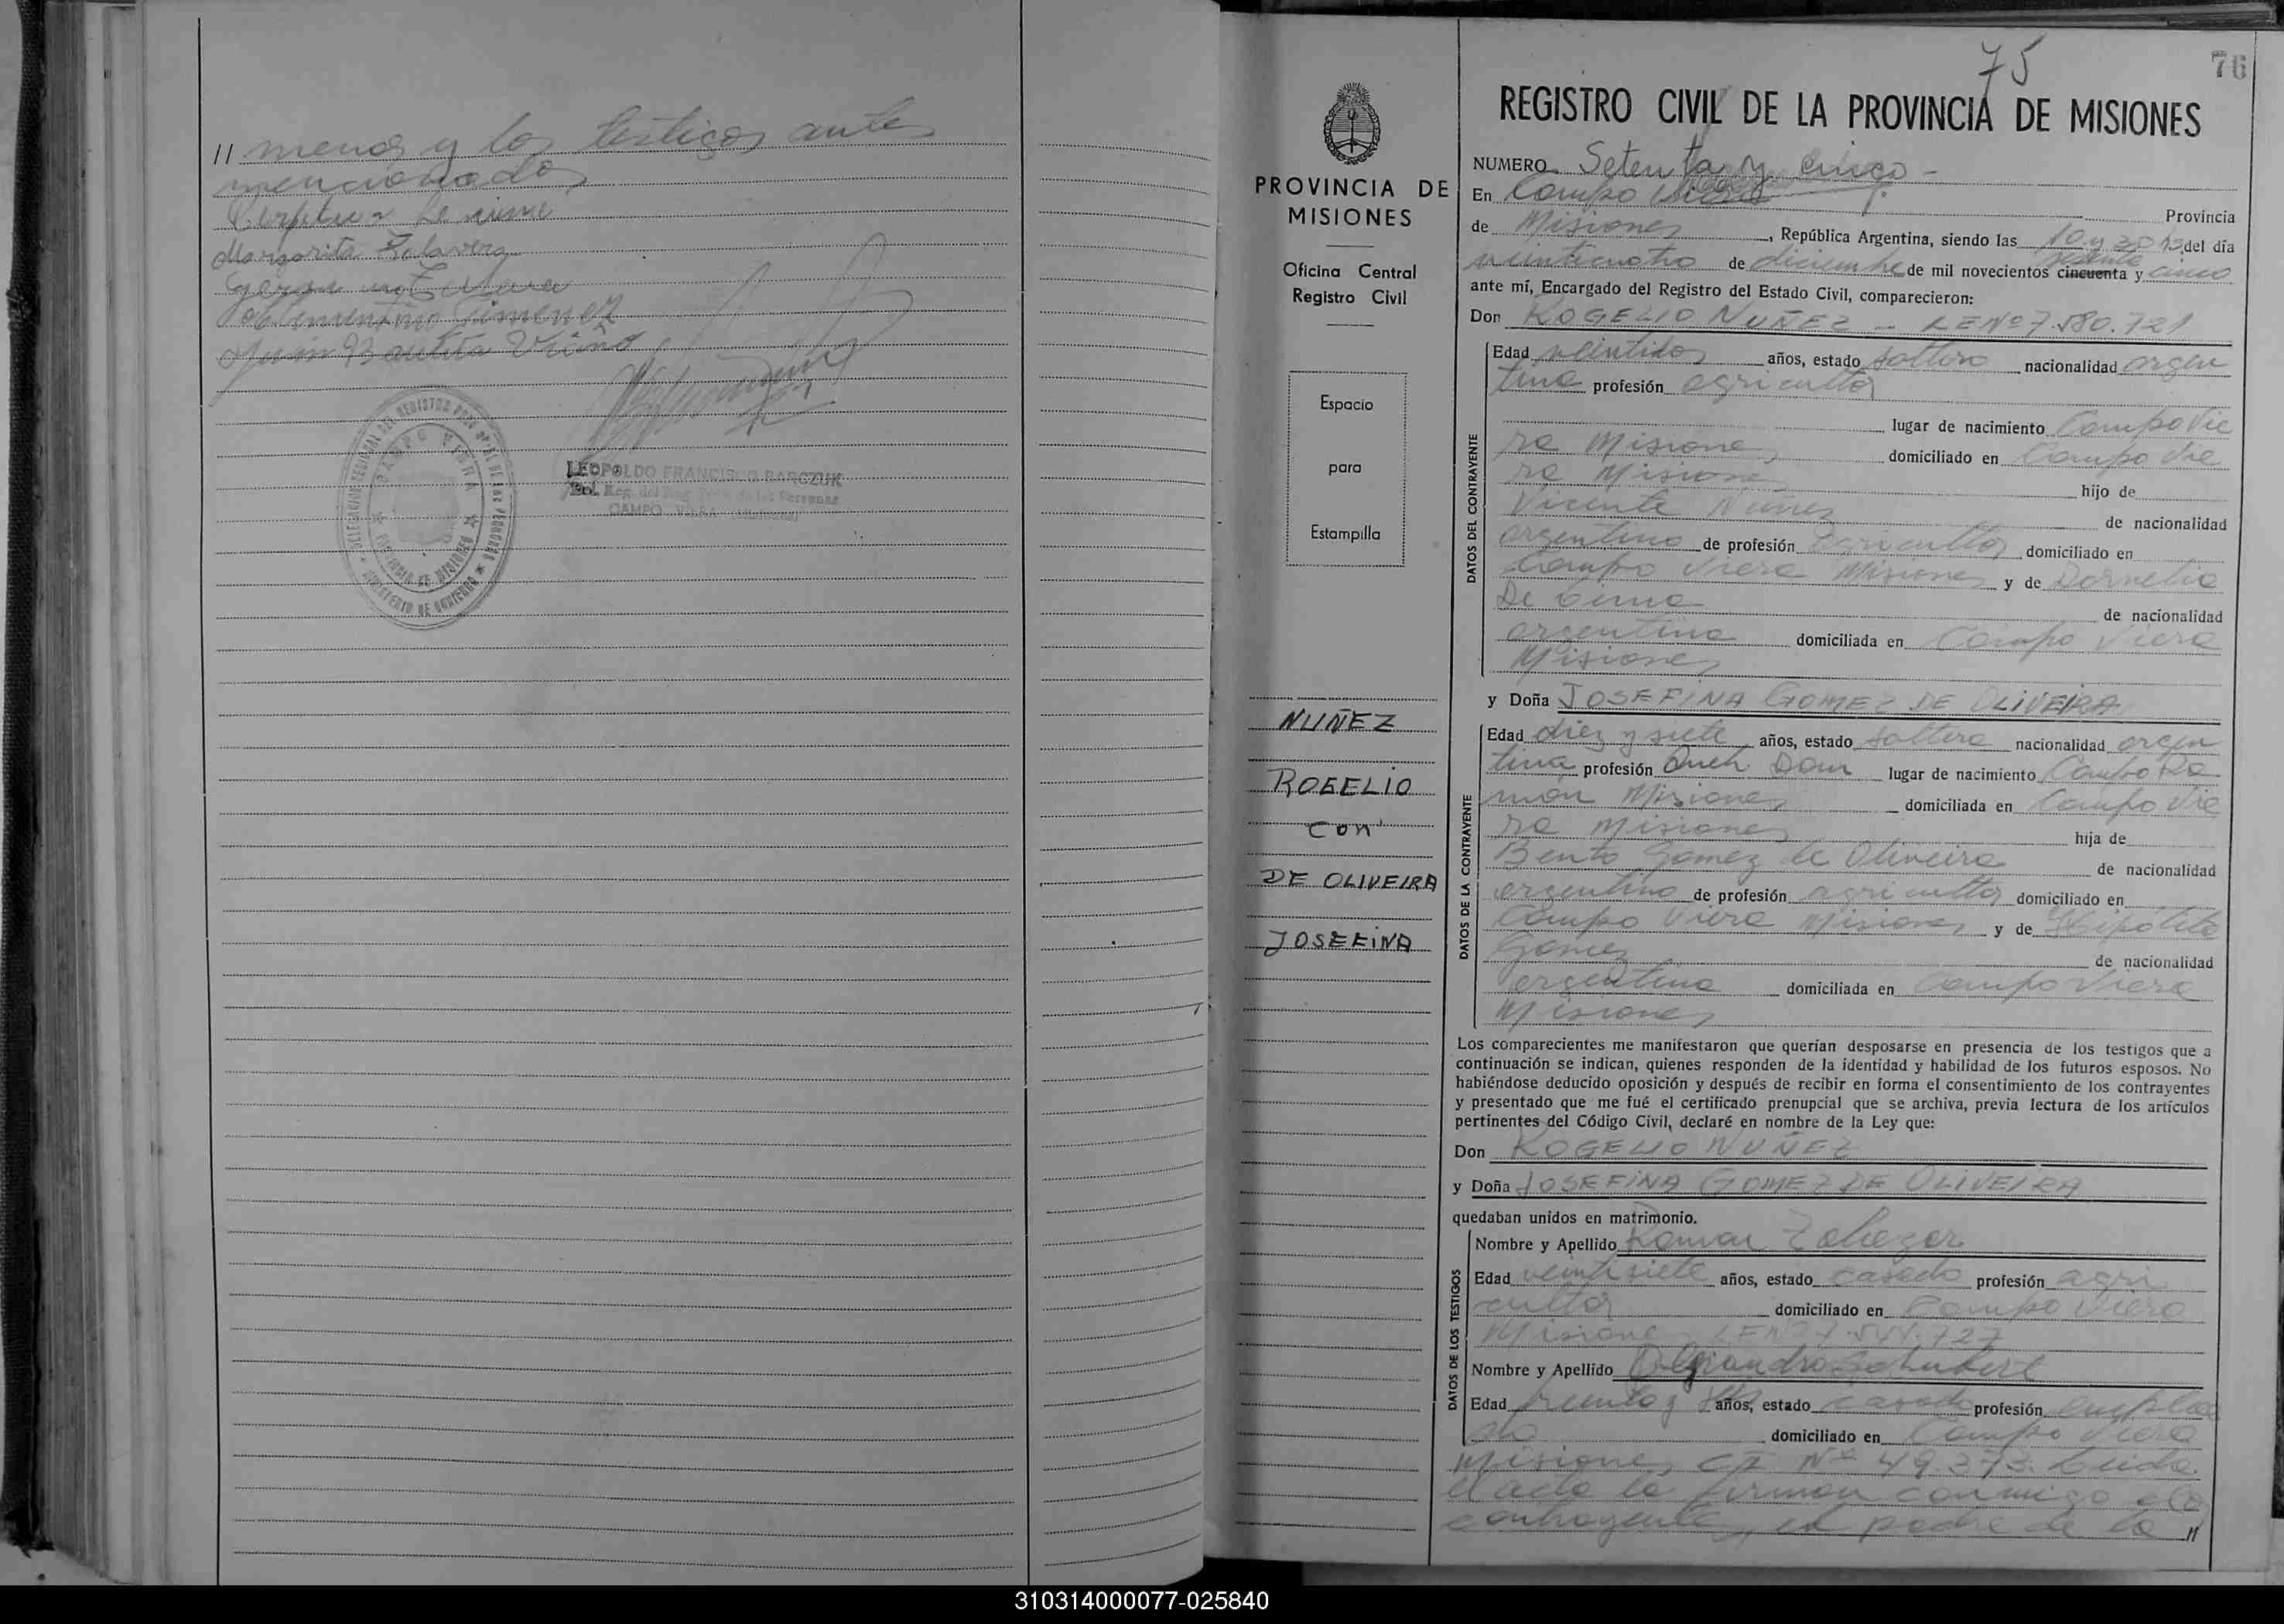 // menor y los testigos antes
mencionados
Margarita Talavera
Juan Bautista
LEOPOLDO FRANCISCO BARCZUK
CAMPO VIERA (Misiones)
75
76
REGISTRO CIVIL DE LA PROVINCIA DE MISIONES
PROVINCIA DE
MISIONES
Oficina Central
Registro Civil
Espacio
para
Estampilla
NUÑEZ
ROGELIO
con
DE OLIVEIRA
JOSEFINA
NUMERO Setenta y cinco -
En Campo Viera Provincia
de Misiones, República Argentina, siendo las 10 y 30 hs del día
veinticuatro de diciembre de mil novecientos cincuenta sesenta y cinco
ante mí, Encargado del Registro del Estado Civil, comparecieron:
Don ROGELIO NUÑEZ - LE Nº 7.580.721
DATOS DEL CONTRAYENTE
Edad veintidos años, estado soltero nacionalidad argen
tina profesión agricultor
lugar de nacimiento Campo Vie
ra Misiones domiciliado en Campo Vie
ra Misiones hijo de
Vicente Nuñez de nacionalidad
argentino de profesión agricultor domiciliado en
Campo Viera Misiones y de
de nacionalidad
argentina domiciliada en Campo Viera
Misiones
y Doña JOSEFINA GOMEZ DE OLIVEIRA
DATOS DE LA CONTRAYENTE
Edad diez y siete años, estado soltera nacionalidad argen
tina profesión Queh. Dom lugar de nacimiento Campo Ra
món Misiones domiciliada en Campo Vie
ra Misiones hija de
Bento Gomez de Oliveira de nacionalidad
argentino de profesión agricultor domiciliado en
Campo Viera Misiones y de Hipólita
Gomez de nacionalidad
argentina domiciliada en Campo Viera
Misiones
Los comparecientes me manifestaron que querían desposarse en presencia de los testigos que a
continuación se indican, quienes responden de la identidad y habilidad de los futuros esposos. No
habiéndose deducido oposición y después de recibir en forma el consentimiento de los contrayentes
y presentado que me fué el certificado prenupcial que se archiva, previa lectura de los artículos
pertinentes del Código Civil, declaré en nombre de la Ley que:
Don ROGELIO NUÑEZ
y Doña JOSEFINA GOMEZ DE OLIVEIRA
quedaban unidos en matrimonio.
DATOS DE LOS TESTIGOS
Nombre y Apellido Roman
Edad veintisiete años, estado casado profesión agri
cultor domiciliado en Campo Viera
Misiones
Nombre y Apellido Alejandro Schubert
Edad treinta y años, estado casado profesión emplea
do domiciliado en Campo Viera
Misiones CI Nº 49.373. Leida
el acta la firman conmigo los
contrayentes, el padre de la //
310314000077-025840